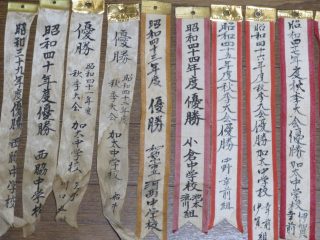 昭和三十九年度 秋季大会 優勝 西脇中学校
昭和四十年度 優勝 西脇中学校
優勝
昭和四十一年度
秋季大会
加太中学校
優勝
昭和四十二年度
秋季大会
加太中学校
昭和四十三年度 優勝 河西中学校
昭和四十四年度 優勝 小倉中学校
昭和四十五年度秋季大会優勝 中野 幸前 組
昭和四十六年度秋季大会優勝 加太中学校 幸前 伊賀
昭和四十七年度秋季大会優勝 加太中学校 伊賀 幸前